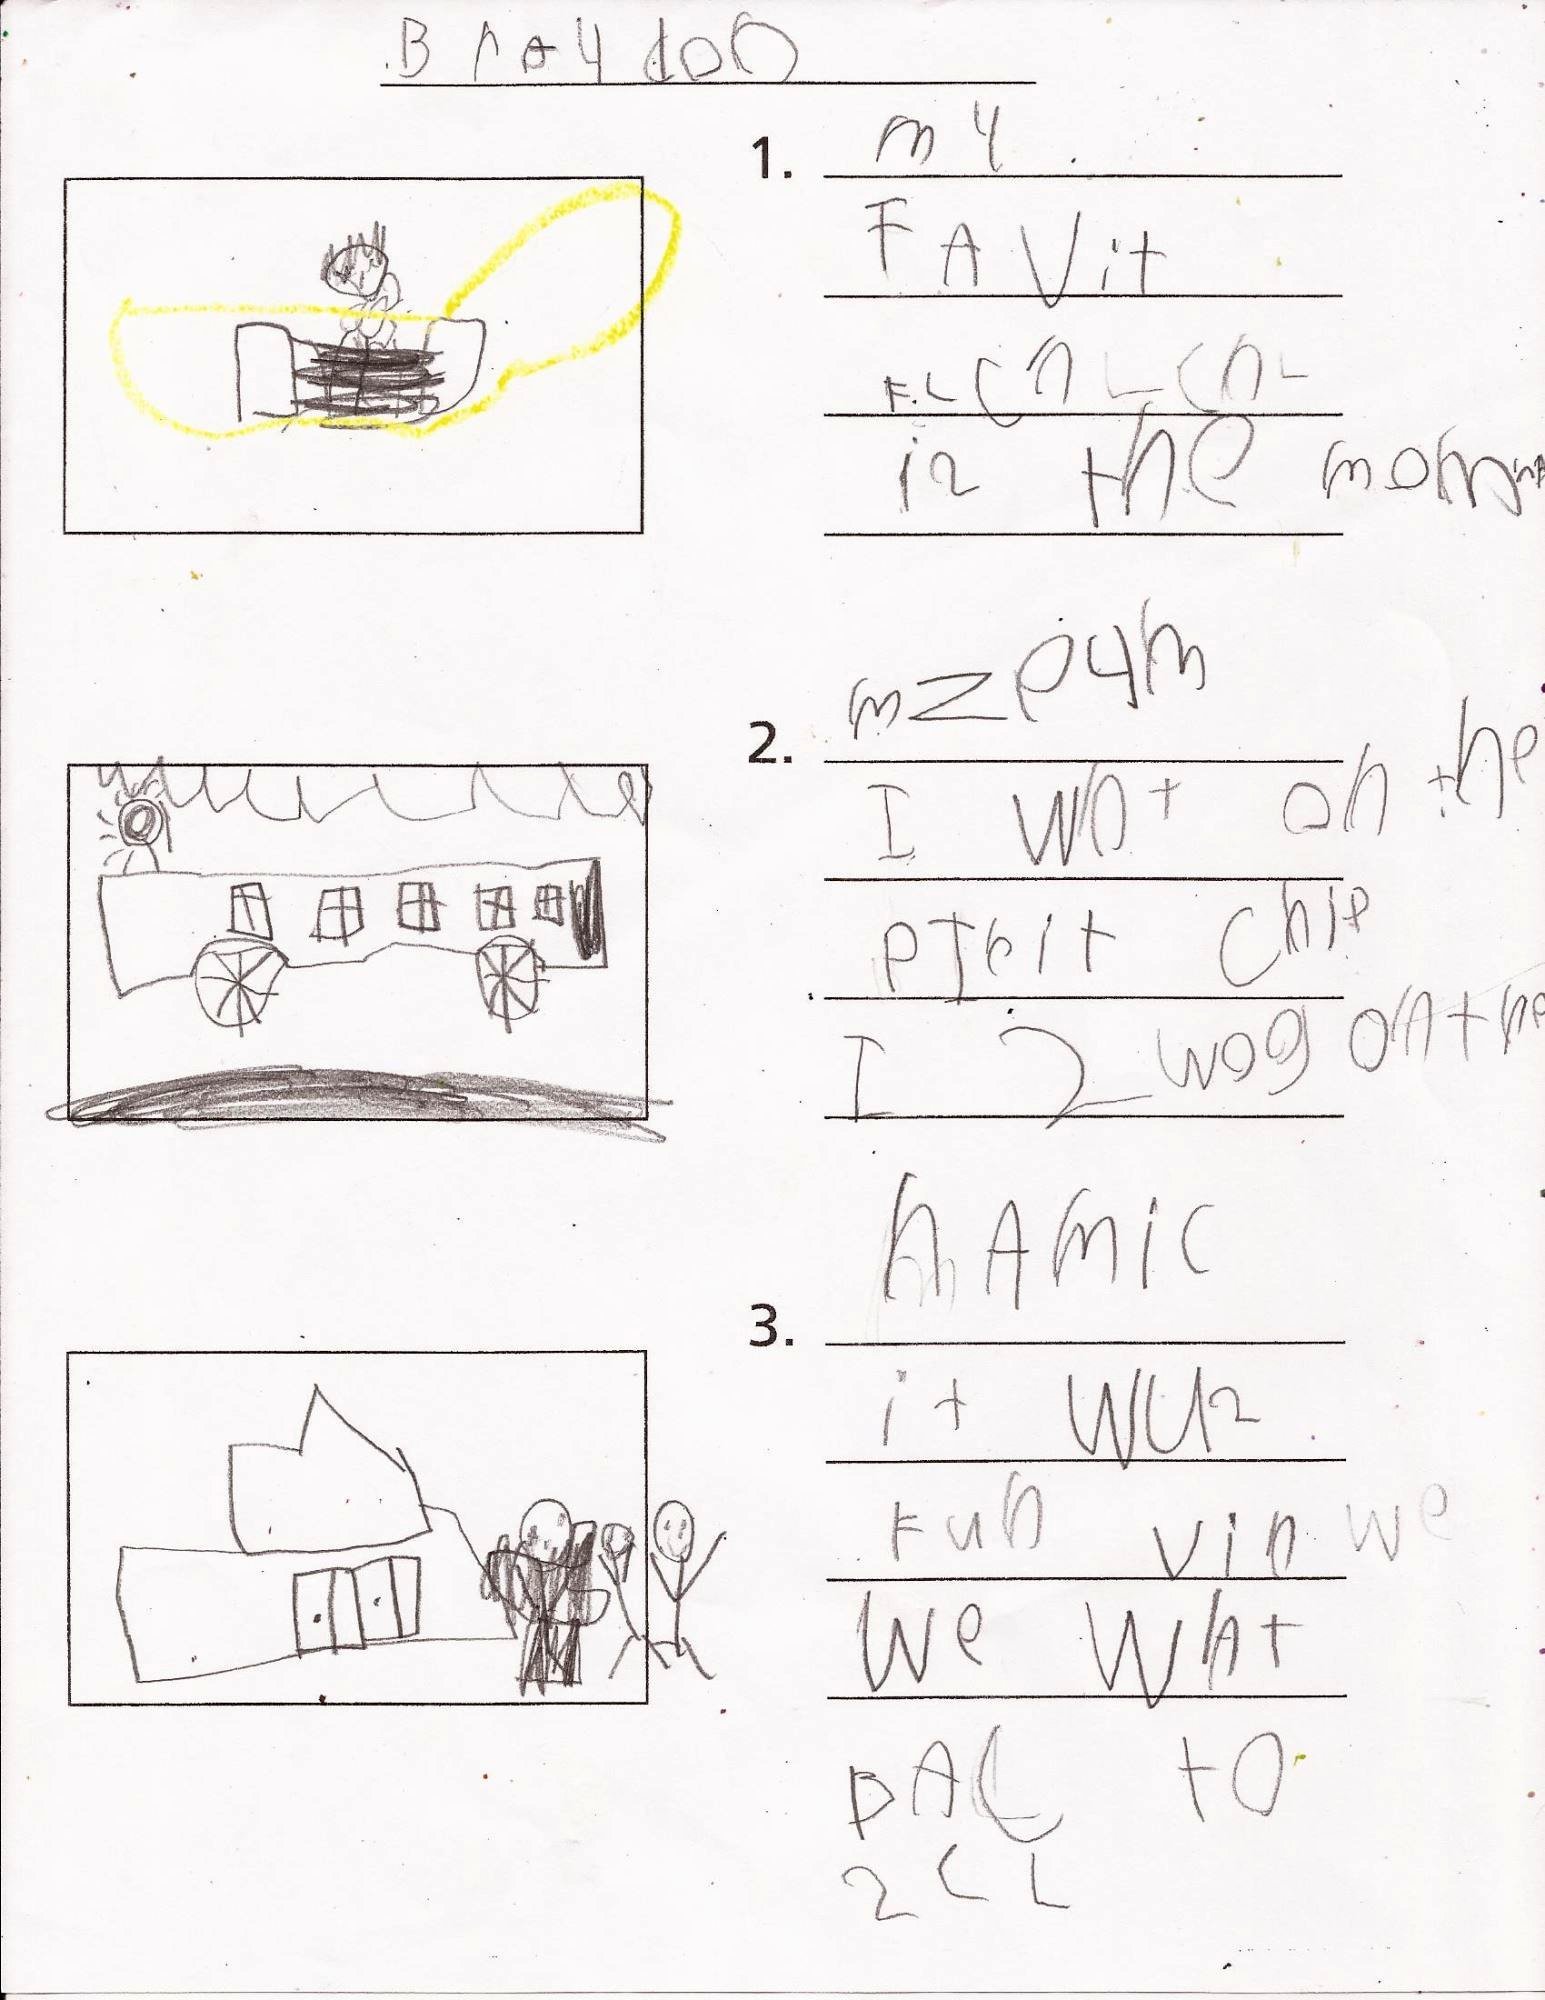 Braydon
1. my
FAVit
iz the
mzeym
2. I Wnt on the
PIrit Chip
I 2 wog on the
hAmic
3. it Wuz
Fun vin we
We Wnt
BAC to
2CL